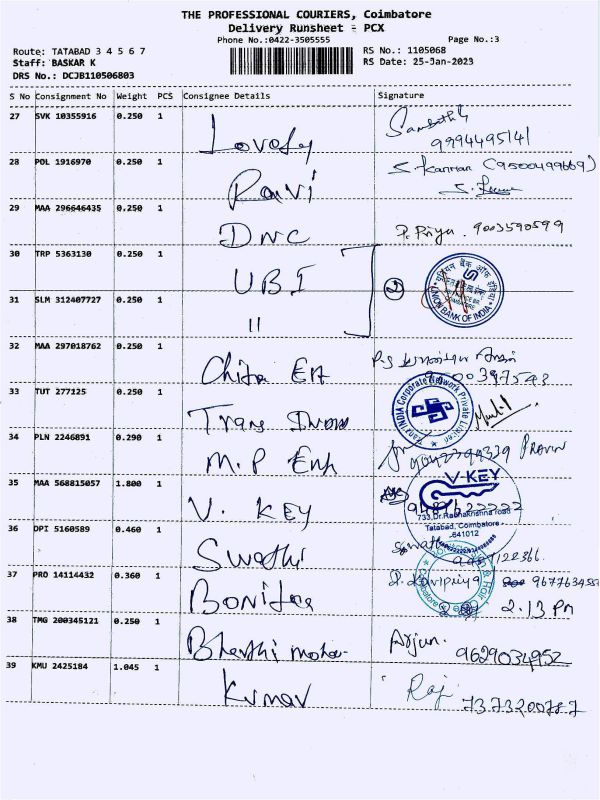 THE PROFESSIONAL COURIERS, Coimbatore
Delivery Runsheet - PCX
Phone No.:0422-3505555
Page No.:3
Route: TATABAD 3 4 5 6 7
RS No.: 1105068
Staff: BASKAR K
RS Date: 25-Jan-2023
DRS No.: DCJB110506803
S No Consignment No Weight PCS Consignee Details Signature
27 SVK 10355916 0.250 1 Lovely
9994495141
28 POL 1916970 0.250 1 Ravi S. Kannan (9500499669)
29 MAA 296646435 0.250 1 DNC P. Priya. 9003590599
30 TRP 5363130 0.250 1 UBI 2
UNION BANK OF INDIA
31 SLM 312407727 0.250 1 "
32 MAA 297018762 0.250 1 Chitra Ent
33 TUT 277125 0.250 1 Trans
INDIA Corporate Network Private Limited
34 PLN 2246891 0.290 1 M.P Enth
35 MAA 568815057 1.800 1 V. KEY
V-KEY
733, Dr.Radhakrishna road
Tatabad, Coimbatore
641012
36 DPI 5160589 0.460 1 Swathi
37 PRO 14114432 0.360 1 Bonitaa
2.13 Pm
38 TMG 200345121 0.250 1 Bharathi mohan Arjun.
9629034952
39 KMU 2425184 1.045 1 Kumar Raj